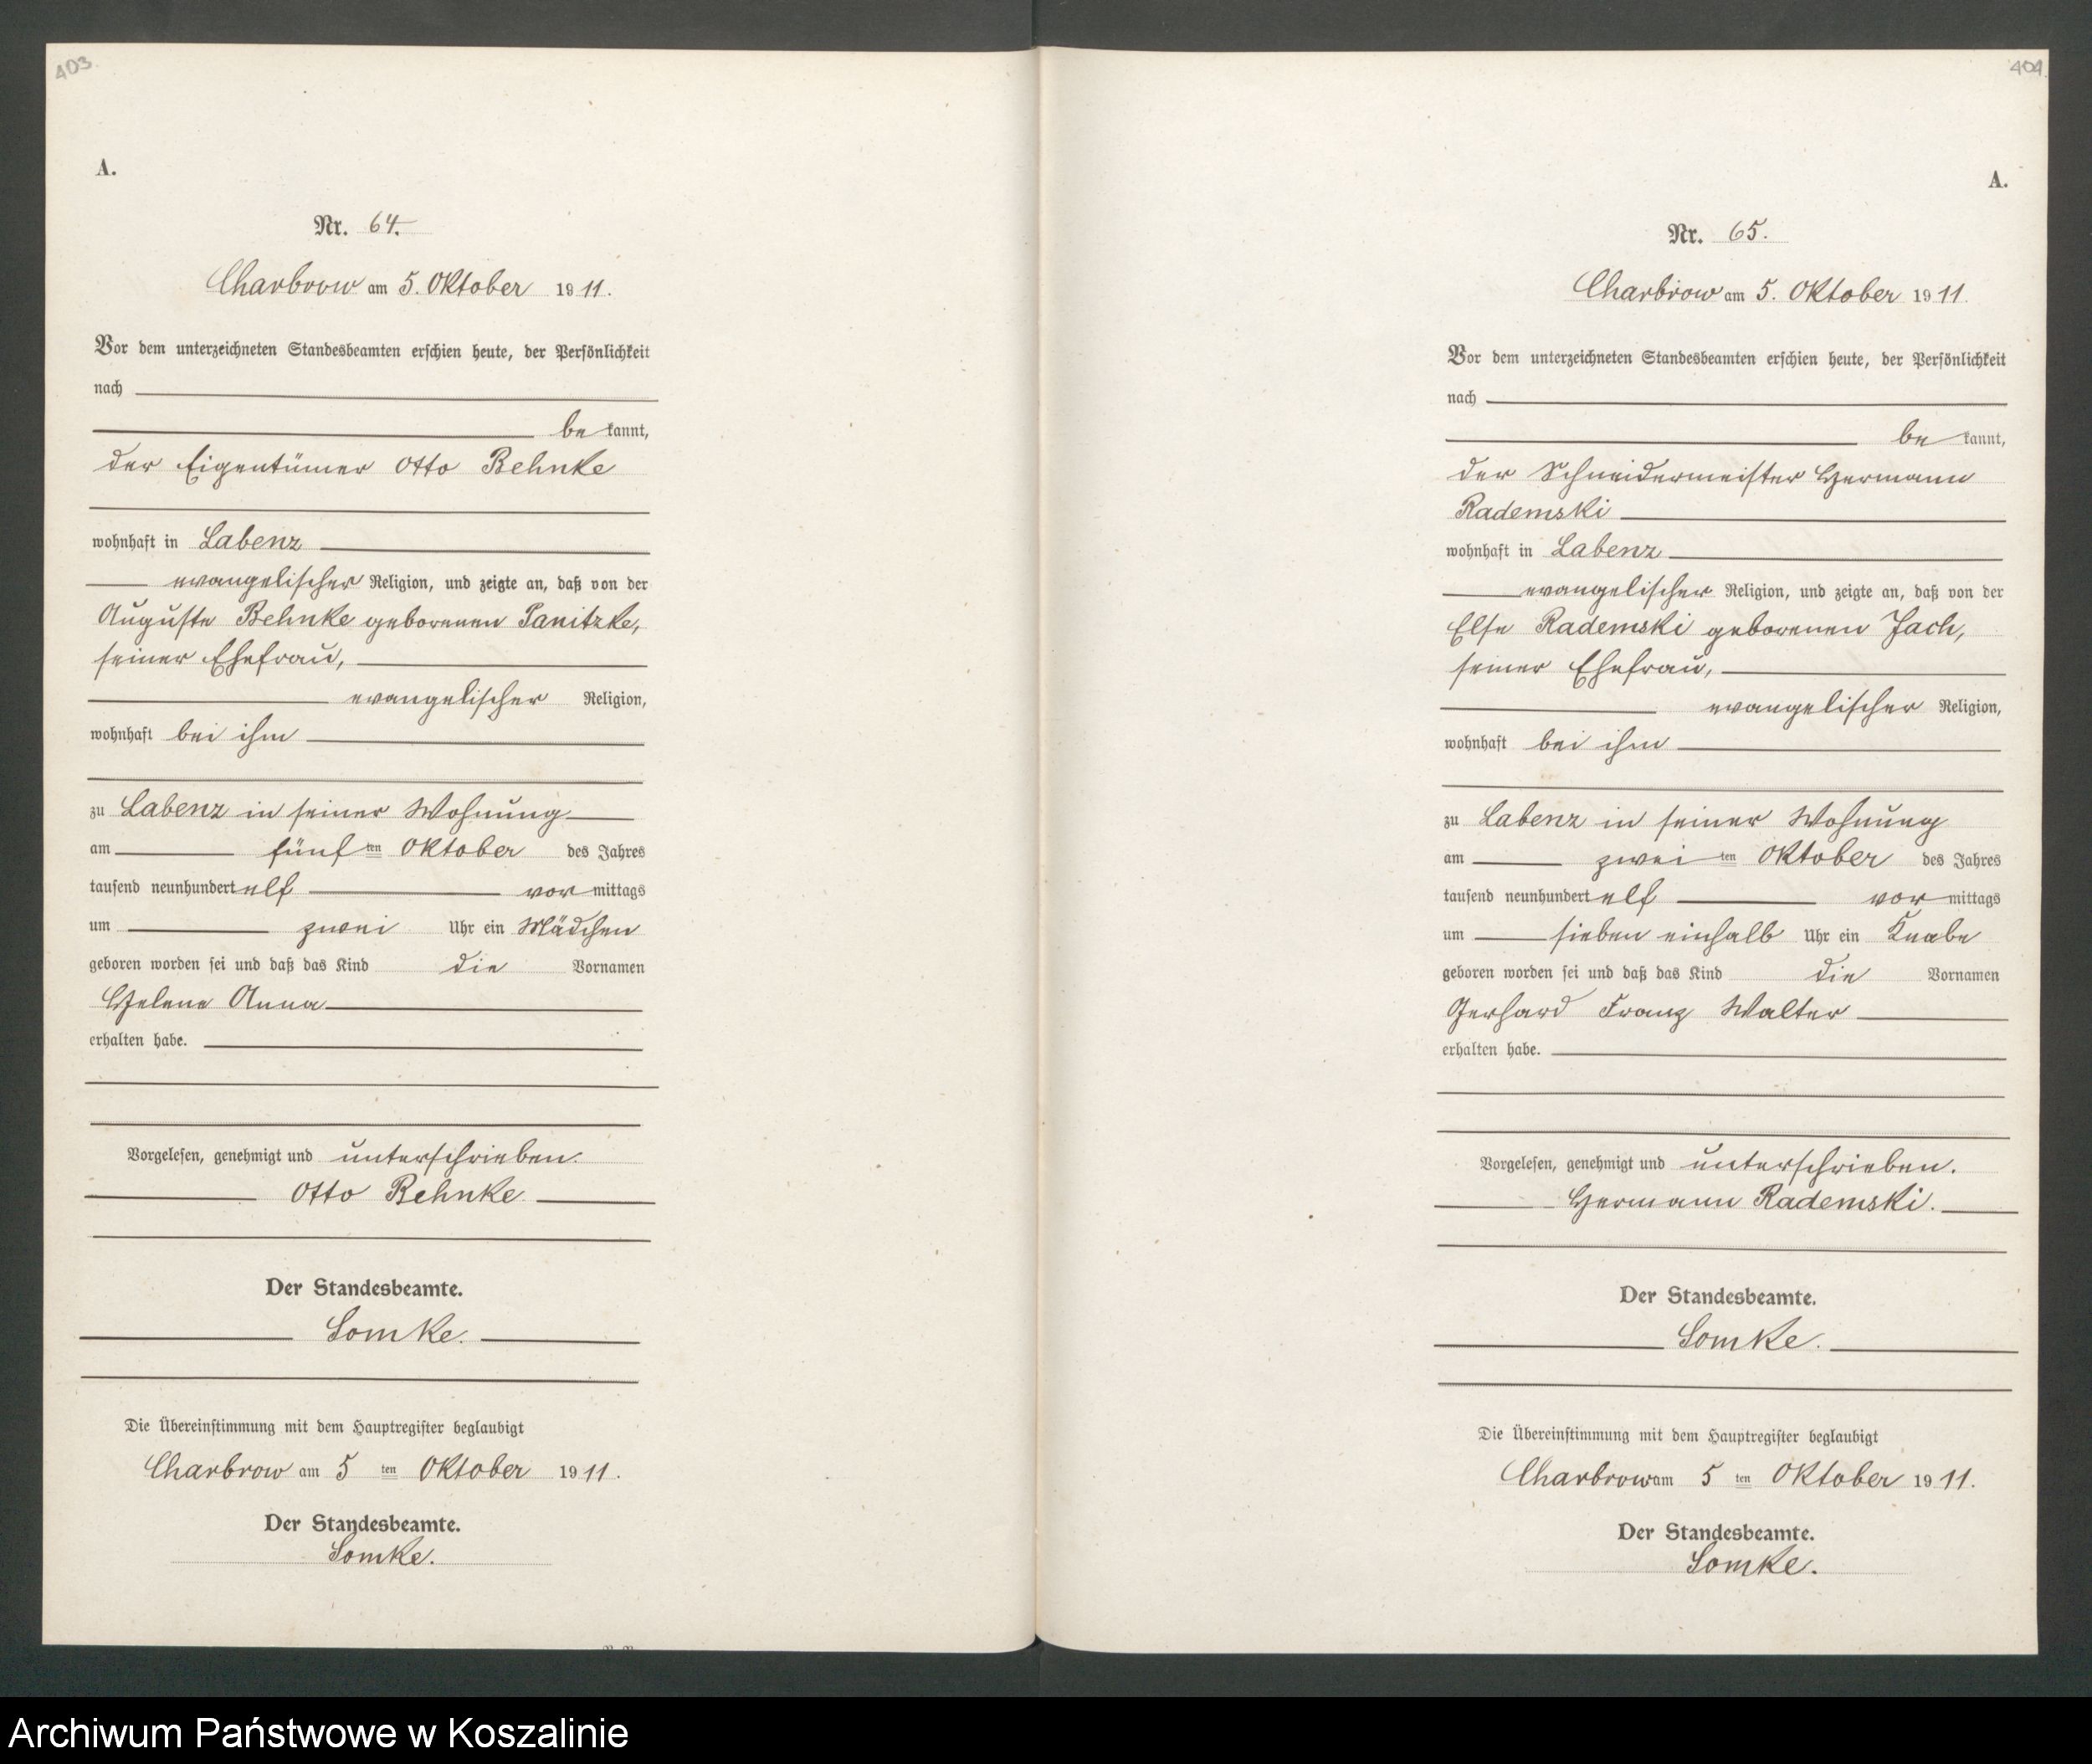 403.
A.
Nr. 64.
Charbrow am 5. Oktober 1911.
Vor dem unterzeichneten Standesbeamten erschien heute, der Persönlichkeit
nach
be kannt,
der Eigentümer Otto Behnke
wohnhaft in Labenz
evangelischer Religion, und zeigte an, daß von der
Auguste Behnke geborenen Panitzke,
seiner Ehefrau,
evangelischer Religion,
wohnhaft bei ihm
zu Labenz in seiner Wohnung
am fünf ten Oktober des Jahres
tausend neunhundert elf vor mittags
um zwei Uhr ein Mädchen
geboren worden sei und daß das Kind die Vornamen
Helene Anna
erhalten habe.
Vorgelesen, genehmigt und unterschrieben.
Otto Behnke
Der Standesbeamte.
Lomke.
Die Übereinstimmung mit dem Hauptregister beglaubigt
Charbrow am 5 ten Oktober 1911.
Der Standesbeamte.
Lomke.
404.
A.
Nr. 65.
Charbrow am 5. Oktober 1911.
Vor dem unterzeichneten Standesbeamten erschien heute, der Persönlichkeit
nach
be kannt,
der Schneidermeister Hermann
Rademski
wohnhaft in Labenz
evangelischer Religion, und zeigte an, daß von der
Else Rademski geborenen Jach,
seiner Ehefrau,
evangelischer Religion,
wohnhaft bei ihm
zu Labenz in seiner Wohnung
am zwei ten Oktober des Jahres
tausend neunhundert elf vor mittags
um sieben einhalb Uhr ein Knabe
geboren worden sei und daß das Kind die Vornamen
Gerhard Franz Walter
erhalten habe.
Vorgelesen, genehmigt und unterschrieben.
Hermann Rademski.
Der Standesbeamte.
Lomke.
Die Übereinstimmung mit dem Hauptregister beglaubigt
Charbrow am 5 ten Oktober 1911.
Der Standesbeamte.
Lomke.
Archiwum Państwowe w Koszalinie